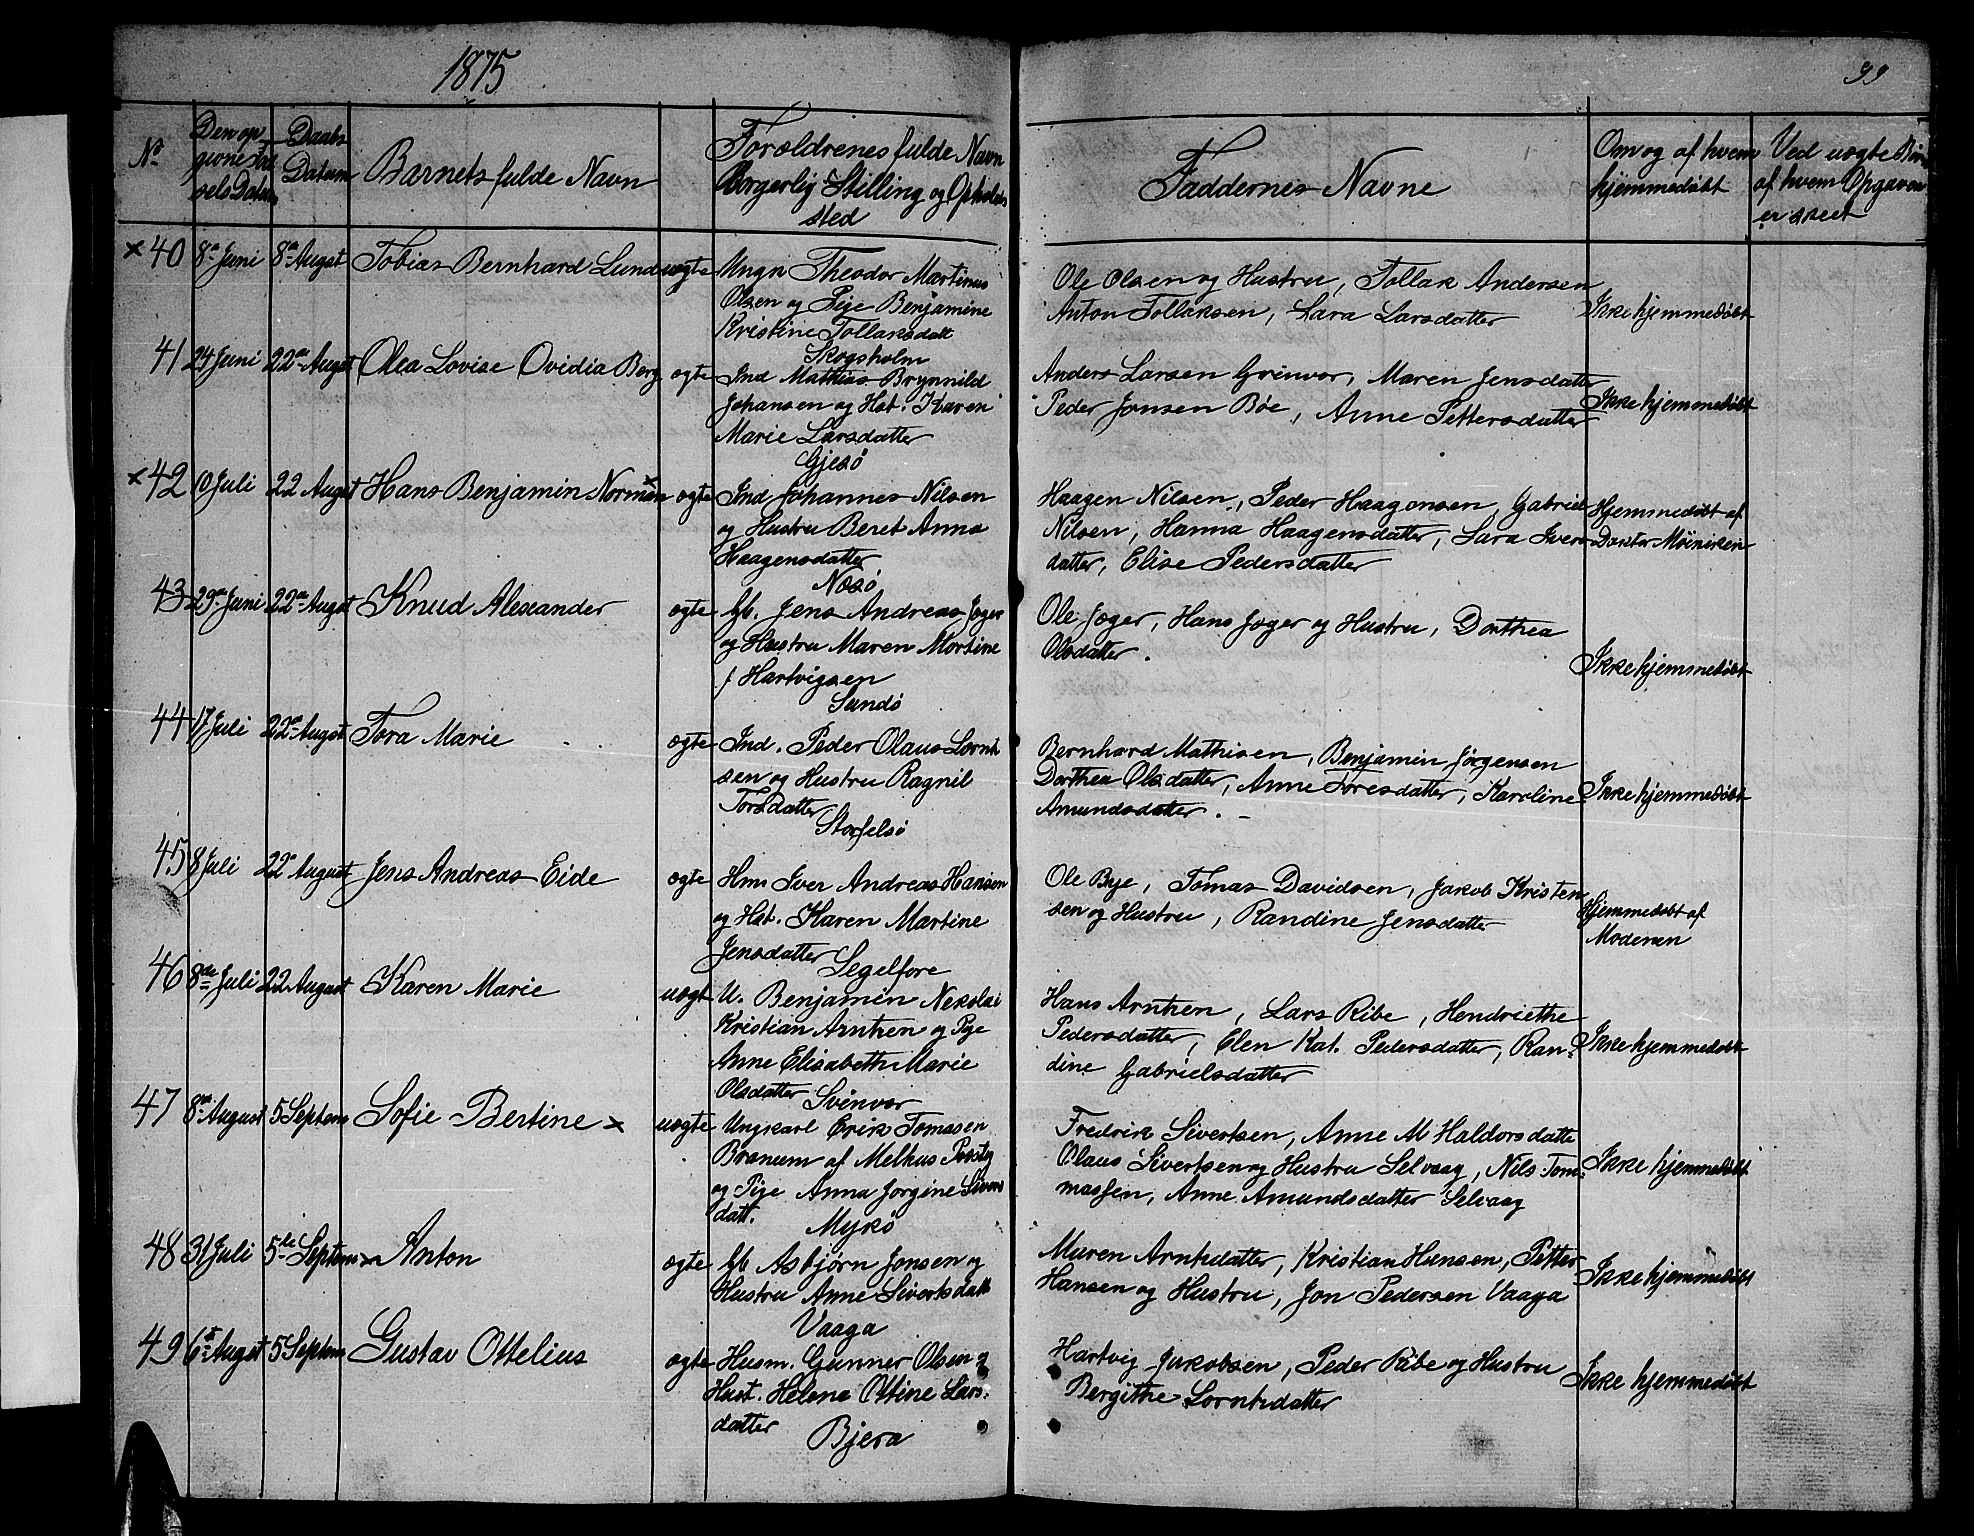 1875
99
No
Den op
givne Fød
sels Datum
Daabs
Datum
Barnets fulde Navn
Forældrenes fulde Navn
Borgerlig Stilling og Opholds
sted
Faddernes Navne
Om og af hvem
hjemmedøbt
Ved uægte Børn
af hvem Opgaven
er skeet
× 40 8de Juni 8de Augst Tobias Bernhard Lund uægte Ungk Theodor Martinus
Olsen og Pige Benjamine
Kristine Tollaksdatt
Skogsholm
Ole Olsen og Hustru, Tollak Andersen
Anton Tollaksen, Lara Larsdatter
Ikke hjemmedøbt
41 24 Juni 22de Augst Olea Lovise Ovidia Berg ægte Ind Mathias Brynnild
Johansen og Hst. Karen
Marie Larsdatter
Gjesø
Anders Larsen Grinvor, Maren Jensdatter
Peder Jonsen Bøe, Anne Pettersdatter
Ikke hjemmedøbt
× 42 10 Juli 22 Augst Hans Benjamin Norman × ægte Ind Johannes Nilsen
og Hustru Beret Anna
Haagensdatter
Næsø
Haagen Nilsen, Peder Haagensen, Gabriel
Nilsen, Hanna Haagensdatter, Lara Ivers
datter, Elise Pedersdatter
Hjemmedøbt af
Doktor Møinichen
43 29de Juni 22de Augst Knud Alexander ægte Gb. Jens Andreas Jæger
og Hustru Maren Mortine
f Hartvigsen
Sundø
Ole Jæger, Hans Jæger og Hustru, Dorthea
Olsdatter.
Ikke hjemmedøbt
44 17 Juli 22de Augst Tora Marie ægte Ind. Peder Olaus Lornt
sen og Hustru Ragnil
Torsdatter
Storselsø
Bernhard Mathisen, Benjamin Jørgensen
Dorthea Olsdatter, Anne Toresdatter, Karoline
Amundsdatter.
Ikke hjemmedøbt
45 8 Juli 22de August Jens Andreas Eide ægte Hm. Iver Andreas Hansen
og Hst. Karen Martine
Jensdatter Segelfore
Ole Bye, Tomas Davidsen, Jakob Kristen
sen og Hustru, Randine Jensdatter
Hjemmedøbt af
Moderen
46 8de Juli 22 August Karen Marie uægt U. Benjamin Nekolai
Kristian Arntzen og Pige
Anne Elisabeth Marie
Olsdatter Svinvær
Hans Arntzen, Lars Ribe, Hendriethe
Pedersdatter, Elen Kat. Pedersdatter, Ran-
dine Gabrielsdatter
Ikke hjemmedøbt
47 8de August 5 Septem Sofie Bertine × uægte Ungkarl Erik Tomasen
Brænum af Melhus Præstg
og Pige Anna Jorgine Sivers
datt.
Mykø
Fredrik Sivertsen, Anne M Haldorsdatte
Olaus Sivertsen og Hustru Selvaag, Nils Tom-
massen, Anne Amundsdatter Selvaag
Ikke hjemmedøbt
48 31 Juli 5te Septem Anton ægte Gb Asbjørn Jonsen og
Hustru Anne Sivertsdatt
Vaaga
Maren Arntsdatter, Kristian Hansen, Petter
Hansen og Hustru, Jon Pedersen Vaaga
Ikke hjemmedøbt
49 6te Augst 5 Septem Gustav Ottelius ægte Husm. Gunner Olsen og
Hust. Helene Ottine Lars-
datter
Bjera
Hartvig Jakobsen, Peder Ribe og Hustru
Bergithe Lorntsdatter
Ikke hjemmedøbt